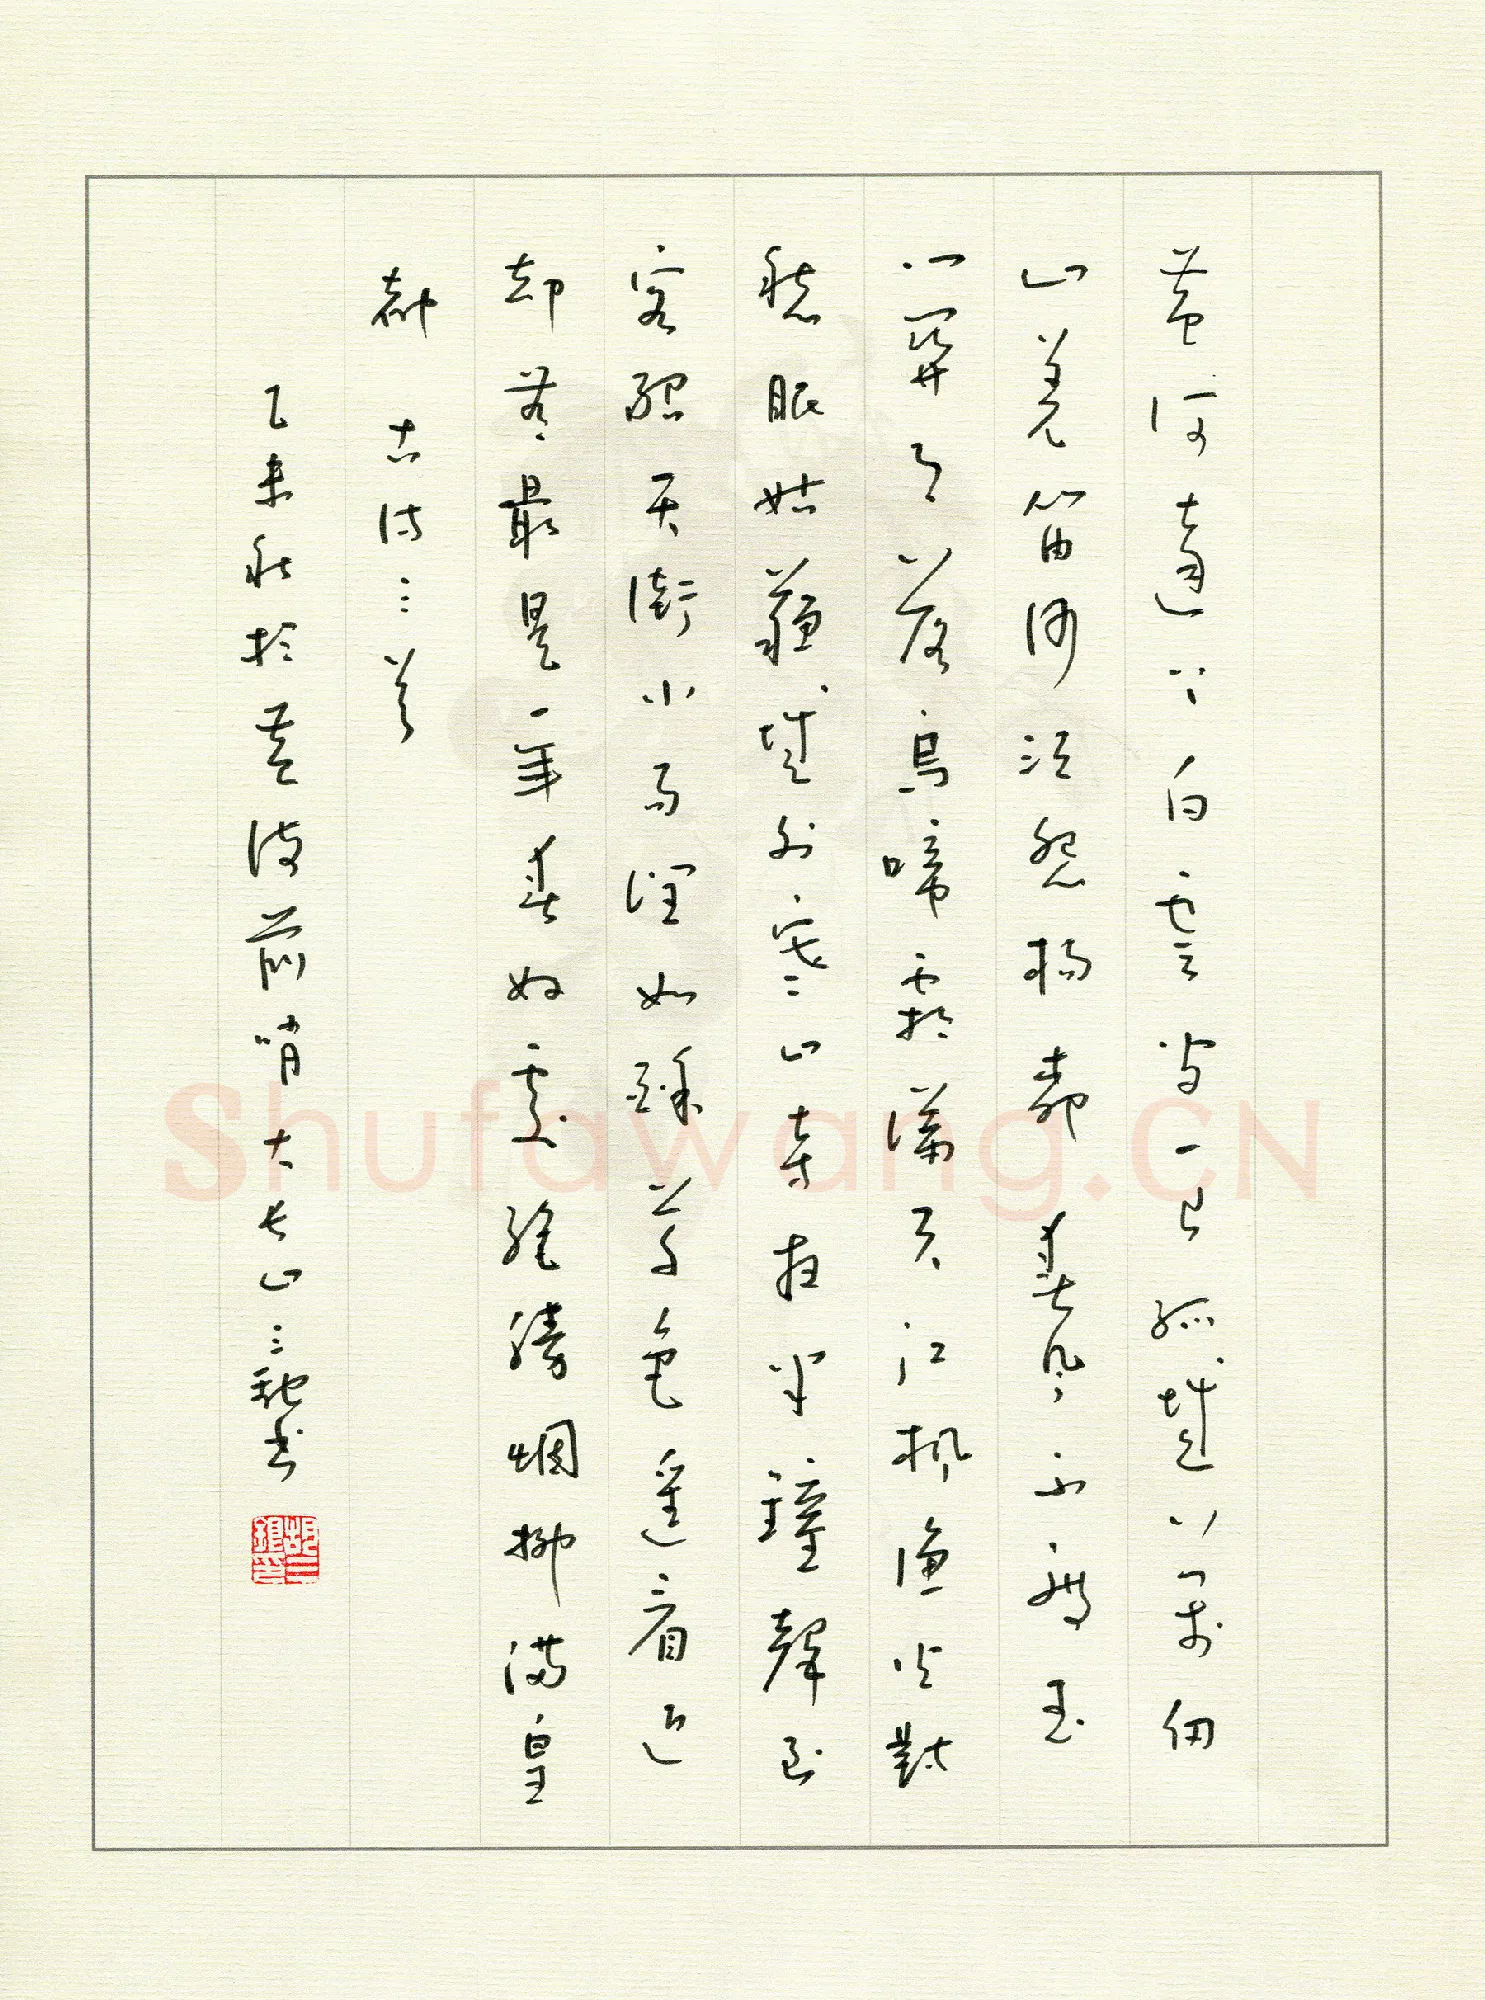 黄河遠上白雲間一片孤城萬仞
山羌笛何須怨楊柳春風不度玉
門關月落烏啼霜滿天江楓漁火對
愁眠姑蘇城外寒山寺夜半鐘聲到
客船天街小雨潤如酥草色遙看近
却無最是一年春好處絕勝烟柳滿皇
都 古詩三首
乙未秋於黃
前哨大長山三
書
Shufawang.CN